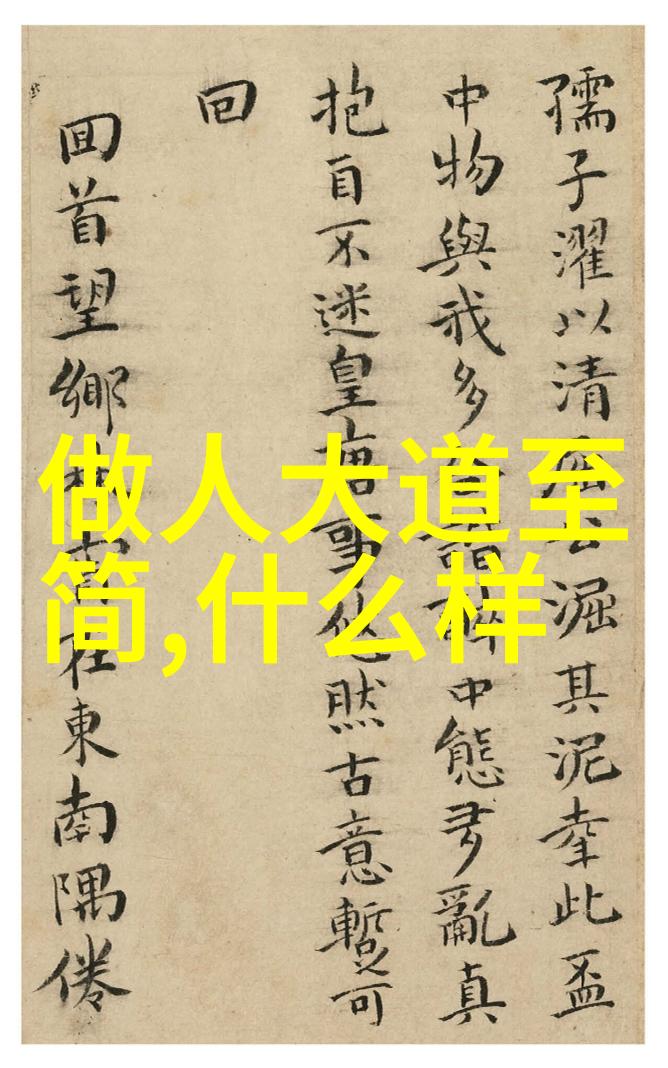 做人大道至
简,什么样
孺子濯以清屈公淈其泥幸此盃
中物與我多諧醉中態多亂真
抱自不迷皇唐事然古意暫可
回
回首望鄉在東南隅倦